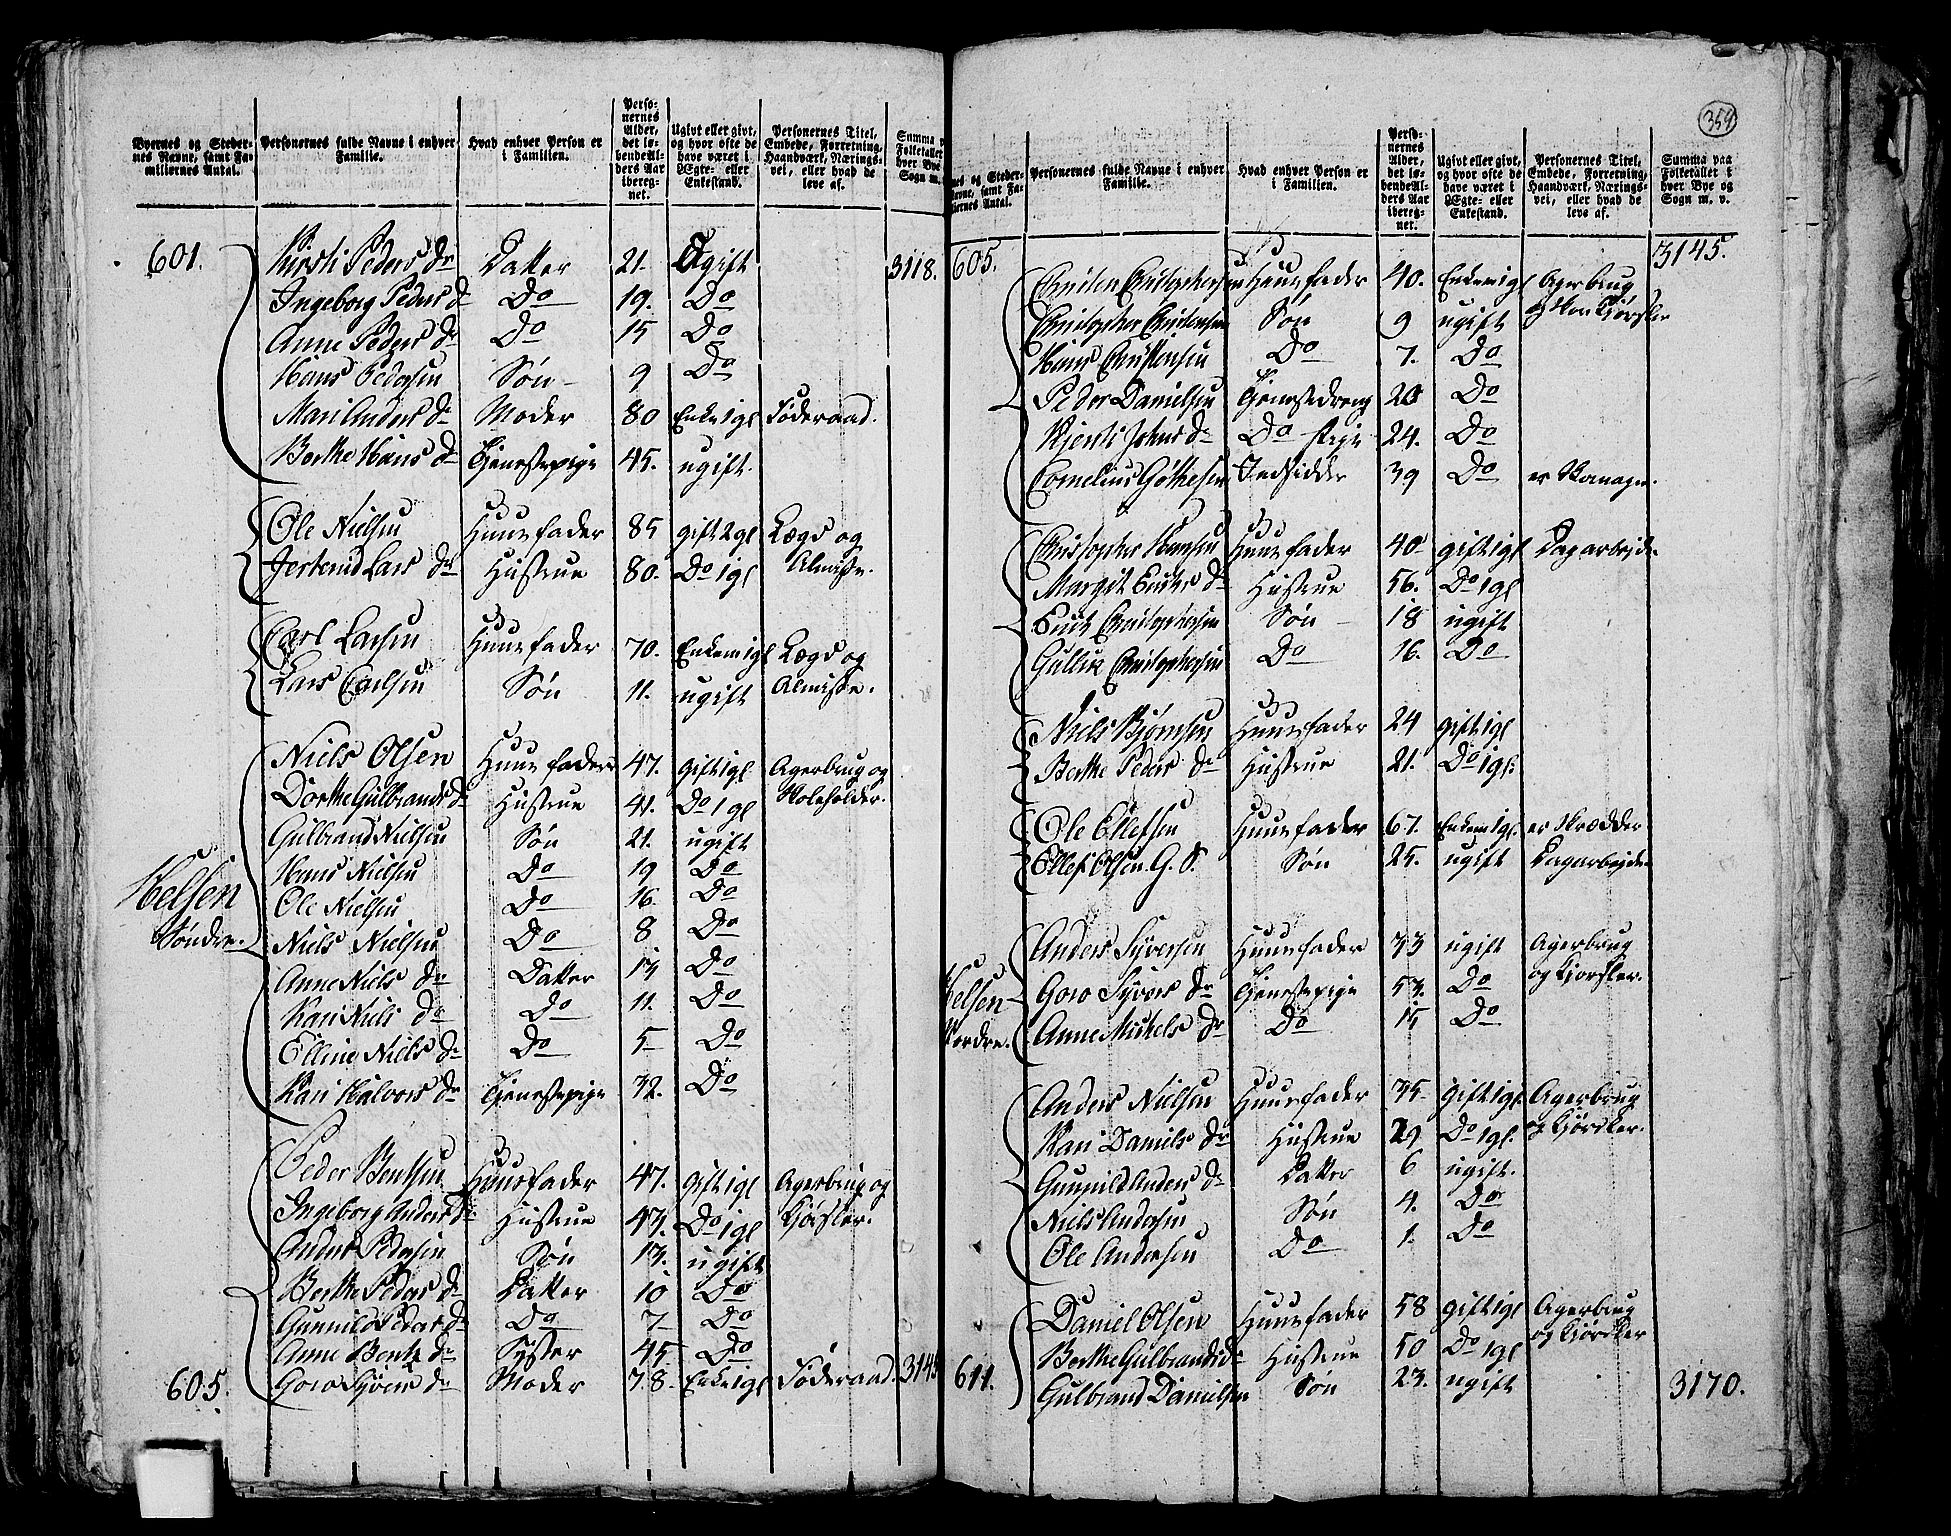 Byernes og Stedernes Navne, samt Familiernes Antal.
Personernes fulde Navne i enhver Familie.
Hvad enhver Person er i Familien.
Personernes Alder, det løbende Alders Aar iberegnet.
Ugivt eller givt, og hvor ofte de have været i Ægte- eller Enkestand.
Personernes Titel, Embede, Forretning, Haandværk, Næringsvei, eller hvad de leve af.
601. Kirsti Peders Dr Datter 21. Ugift 3118.
Ingeborg Peders Dr Do 19. Do
Anne Peders Dr Do 15 Do
Hans Pedersen Søn 9 Do
Mari Anders Dr Moder 80 Enke 1gl Föderaad.
Berthe Hans Dr Tjenestepige 45. ugift.
Ole Nielsen Huusfader 85 gift 2gl Lægd og
Jertrud Lars Dr Hustrue 80. Do 1gl Almisse.
Carl Larsen Huusfader 70. Enkem 1gl Lægd og
Lars Carlsen Søn 11. ugift Almisse.
Niels Olsen Huusfader 47. gift 1gl Agerbrug og
Dorthe Gulbrands Dr Hustrue 41. Do 1gl Skoleholder.
Gulbrand Nielsen Søn 21. ugift
Hans Nielsen Do 19 Do
Helsen Ole Nielsen Do 16. Do
Søndre. Niels Nielsen Do 8 Do
Anne Niels Dr Datter 13 Do
Kari Niels Dr Do 11. Do
Elline Niels Dr Do 5 Do
Kari Halvors Dr Tjenestepige 32. Do
Peder Bentsen Huusfader 47. gift 1gl Agerbrug og
Ingeborg Anders Dr Hustrue 43. Do 1gl Kjørsler.
Anders Pedersen Søn 13. ugift
Berthe Peders Dr Datter 10 Do
Gunnild Peders Dr Do 7 Do
Anne Bents Dr Syster 45. Do
605. Goro Syvers Dr Moder 78. Enke 1gl Föderaad. 3145
359
Personernes fulde Navne i enhver Familie.
Hvad enhver Person er i Familien.
Personernes Alder, det løbende Alders Aar iberegnet.
Ugivt eller givt, og hvor ofte de have været i Ægte- eller Enkestand.
Personernes Titel, Embede, Forretning, Haandværk, Næringsvei, eller hvad de leve af.
Summa paa Folketallet i hver Bye og Sogn m. v.
605. 3145.
Christen Christophersen Huusfader 40. Enkem 1gl Agerbrug
Christopher Christensen Søn 9 ugift Kjørsler
Hans Christensen Do 7. Do
Peder Danielsen Tjenestedreng 20 Do
Kjersti Johns Dr Do Pige 24. Do
Cornelius Indsidder 39 Do er
Christopher Hansen Huusfader 40 gift 1gl Dagarbejder
Margit Eriks Dr Hustrue 56. Do 1gl
Erick Christophersen Søn 18 ugift
Gullik Christophersen Do 16. Do
Niels Bjørnsen Huusfader 24 gift 1gl
Berthe Peders Dr Hustrue 21. Do 1gl.
Ole Ellefsen Huusfader 67. Enkem 1gl. er Skrædder
Ellef Olsen G. S. Søn 25. ugift Dagarbejder
Anders Syversen Huusfader 33 ugift Agerbrug
Helsen Goro Syvers Dr Tjenestepige 53. Do og Kjørsler.
Nordre. Anne Michels Dr Do 15 Do
Anders Nielsen Huusfader 35. gift 1gl Agerbrug
Kari Daniels Dr Hustrue 29 Do 1gl. og Kjørsler.
Gunnild Anders Dr Datter 6 ugift.
Niels Andersen Søn 4. Do
Ole Andersen Do 1. Do
Daniel Olsen Huusfader 58 gift 1gl Agerbrug
Berthe Gulbrands Dr Hustrue 50 Do 1gl og Kjørsler
611. Gulbrand Danielsen Søn 23. ugift 3170.